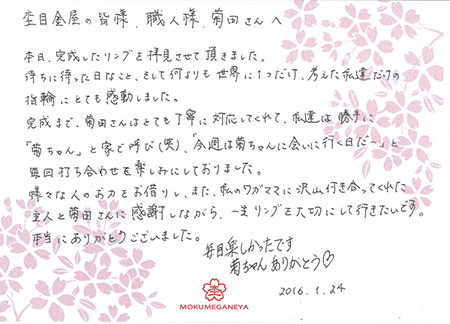 杢目金屋の皆様、職人様、菊田さんへ
本日、完成したリングを拝見させて頂きました。
待ちに待った日なこと、そして何よりも世界に1つだけ、考えた私達だけの
指輪にとても感動しました。
完成まで、菊田さんはとても丁寧に対応してくれて、私達は勝手に
「菊ちゃん」と家で呼び(笑)、「今週は菊ちゃんに会いに行く日だー」と
毎回打ち合わせを楽しみにしておりました。
様々な人のお力をお借りし、また、私のワガママに沢山付き合ってくれた
主人と菊田さんに感謝しながら、一生リングを大切にして行きたいです。
本当にありがとうございました。
毎日楽しかったです
菊ちゃんありがとう♡
2016.1.24
MOKUMEGANEYA